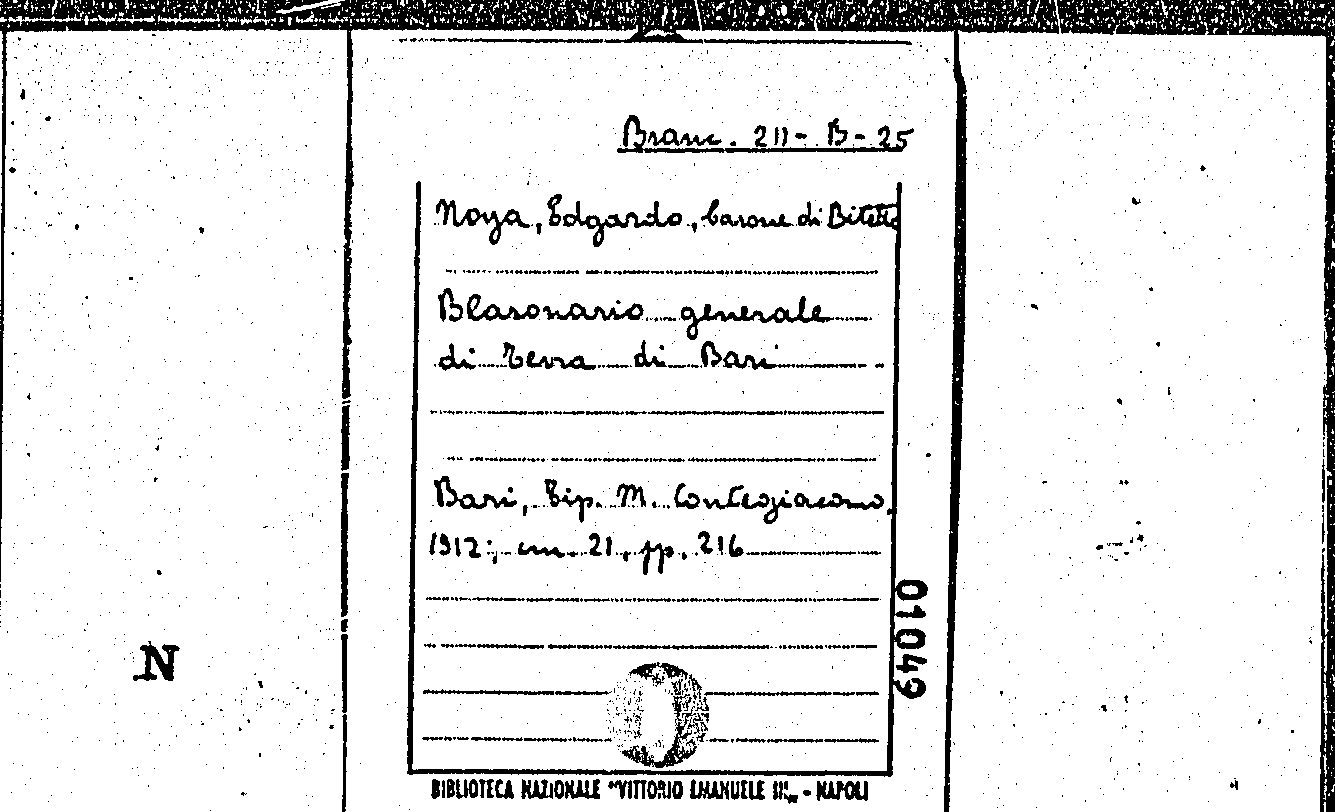 Branc. 211 - B - 25
Noya, Edgardo, barone di Bitetto
Blasonario generale
di Terra di Bari
Bari, Tip. M. Contegiacomo,
1912; cm. 21, pp. 216
01049
N
BIBLIOTECA NAZIONALE "VITTORIO EMANUELE III„ - NAPOLI